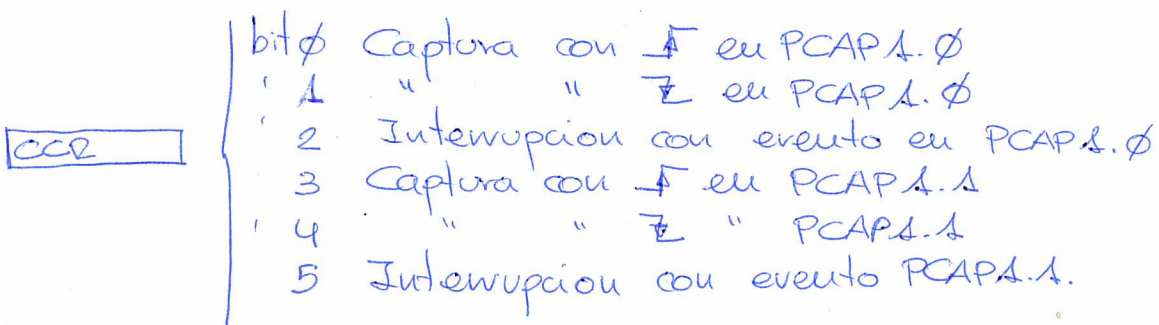 bit0 Captura con ↑ en PCAP1.0
" 1 " " ↓ en PCAP1.0
CCR
" 2 Interrupcion con evento en PCAP1.0
3 Captura con ↑ en PCAP1.1
" 4 " " ↓ " PCAP1.1
5 Interrupcion con evento PCAP1.1.